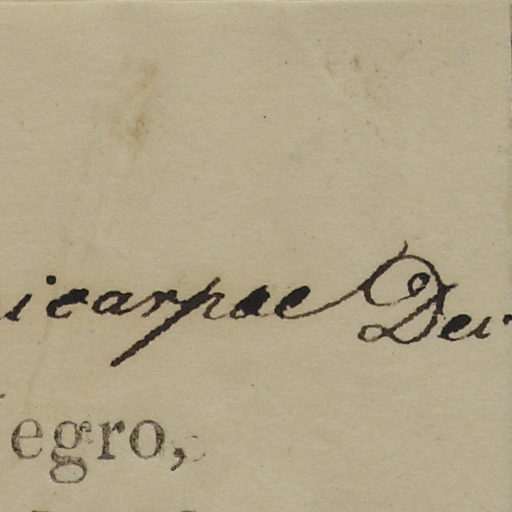 icarpae Dev
egro,